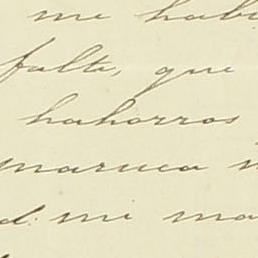 me habi
falta, que
hahorros
maruca
d. mi ma